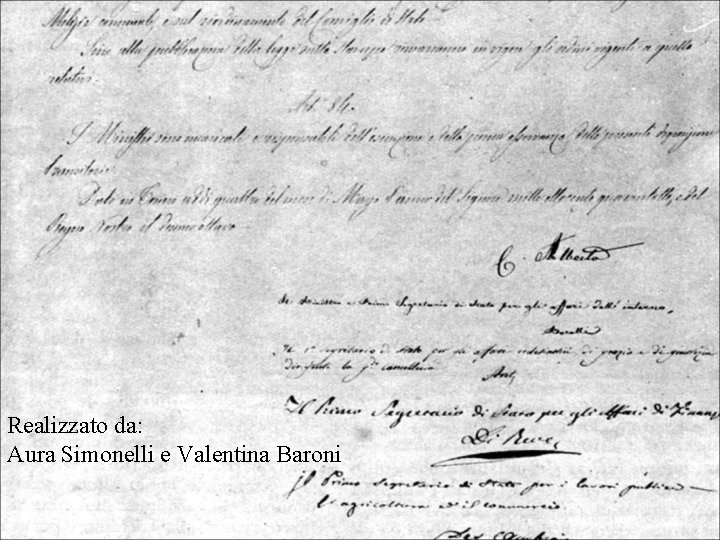 Milizia comunale, e sul riordinamento del Consiglio di Stato.
Sino alla pubblicazione della legge sulla Stampa rimarranno in vigore gli ordini vigenti a quella
relativi.
Art. 84.
I Ministri sono incaricati e responsabili dell'esecuzione e della piena osservanza delle presenti disposizioni
transitorie.
Dato in Torino addì quattro del mese di Marzo l'anno del Signore mille ottocento quarantotto, e del
Regno Nostro il decimo ottavo.
C. Alberto
Il Ministro e Primo Segretario di Stato per gli affari dell' interno,
Borelli
Il 1° Segretario di Stato per gli affari ecclesiastici di grazia e di giustizia
dirigente la cancelleria
Il Primo Segretario di Stato per gli Affari di Finanze
Di Revel
Realizzato da:
Aura Simonelli e Valentina Baroni
Il Primo Segretario di Stato per i lavori pubblici
l'agricoltura ed il commercio.
Des Ambrois